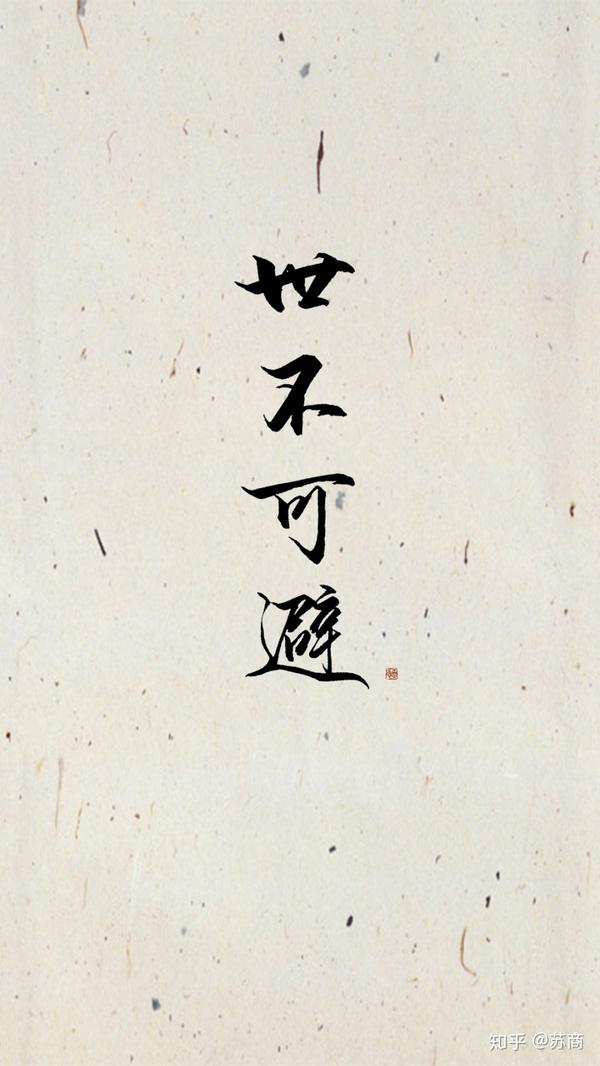 世不可避
知乎 @苏商